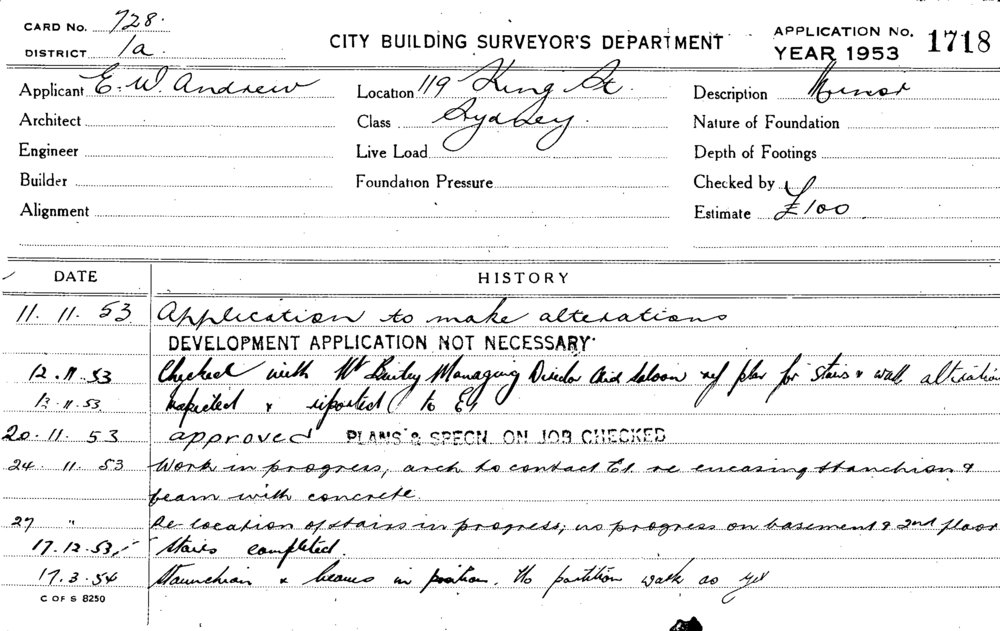 CARD No. 728.
DISTRICT 1a
CITY BUILDING SURVEYOR'S DEPARTMENT
APPLICATION No. 1718
YEAR 1953
Applicant E. W. Andrew
Location 119 King St.
Description Minor
Architect
Class Sydney.
Nature of Foundation
Engineer
Live Load
Depth of Footings
Builder
Foundation Pressure
Checked by
Alignment
Estimate £100
DATE HISTORY
11. 11. 53 Application to make alterations
DEVELOPMENT APPLICATION NOT NECESSARY
12. 11. 53 Checked with Mr Managing Director saloon ref plan for stairs & wall alteration
12. 11. 53 Inspected & reported to
20. 11. 53 approved PLANS & SPECN. ON JOB CHECKED
24. 11. 53 Work in progress, arch to contact re encasing stanchion &
beam with concrete.
27 " Re-location of stairs in progress; no progress on basement & 2nd floor
17. 12. 53 Stairs completed.
17. 3. 54 Staunchion & beams in position. No partition work as yet
C OF S 8250